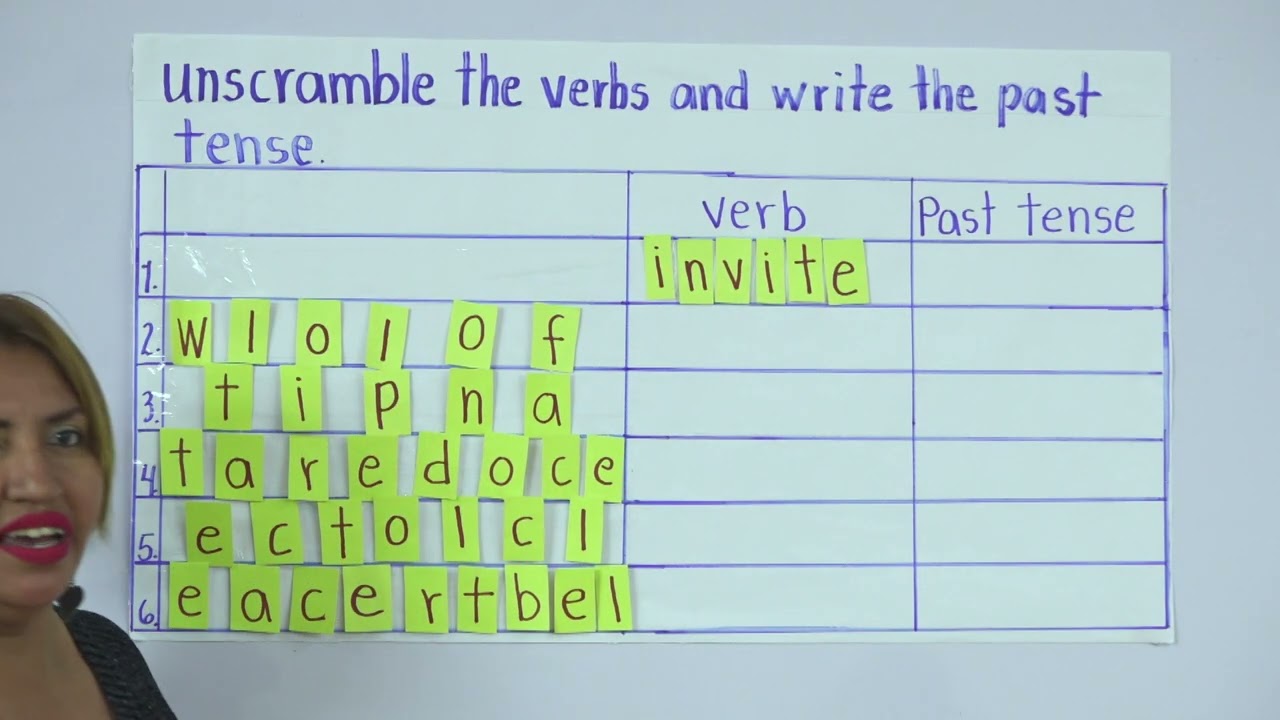 unscramble the verbs and write the past
tense.
verb Past tense
1. invite
2. w l o l o f
3. t i p n a
4. t a r e d o c e
5. e c t o l c l
6. e a c e r t b e l